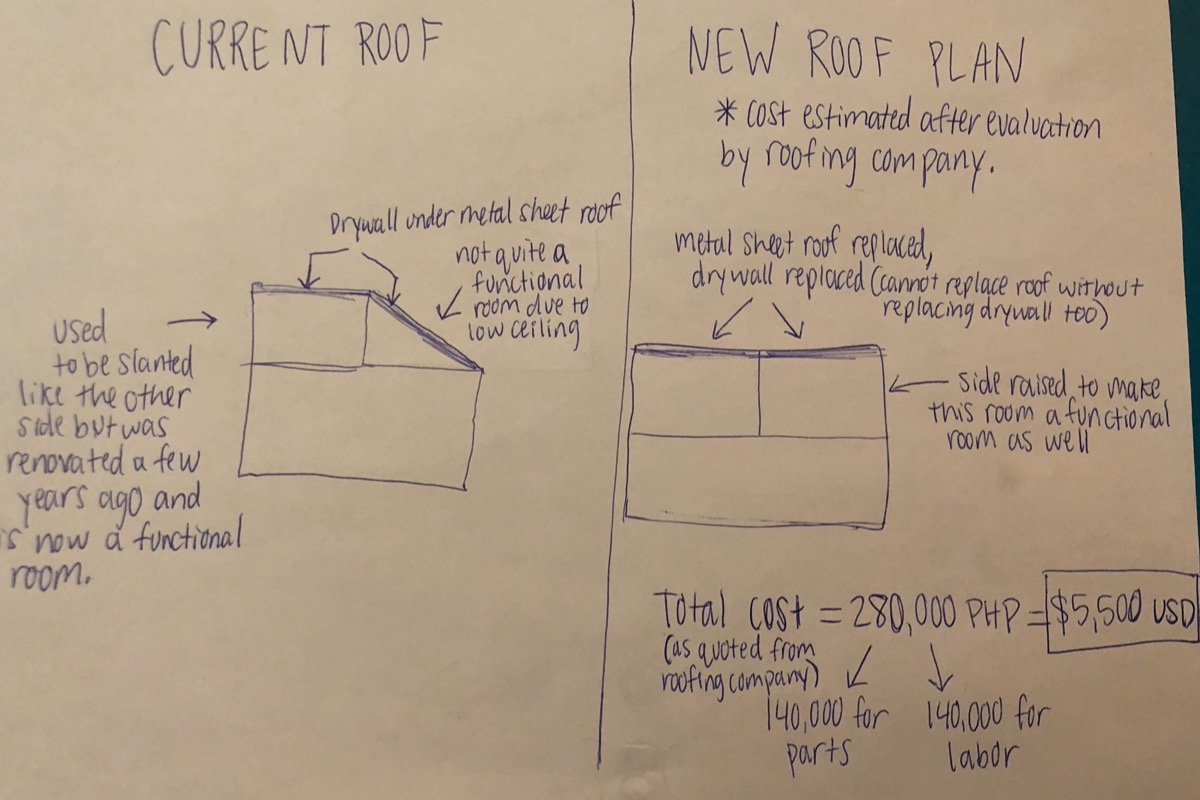 CURRENT ROOF
Drywall under metal sheet roof
not quite a
functional
room due to
low ceiling
used
to be slanted
like the other
side but was
renovated a few
years ago and
is now a functional
room.
NEW ROOF PLAN
* cost estimated after evaluation
by roofing company.
metal sheet roof replaced,
drywall replaced (cannot replace roof without
replacing drywall too)
side raised to make
this room a functional
room as well
Total cost = 280,000 PHP = $5,500 USD
(as quoted from
roofing company)
140,000 for
parts
140,000 for
labor